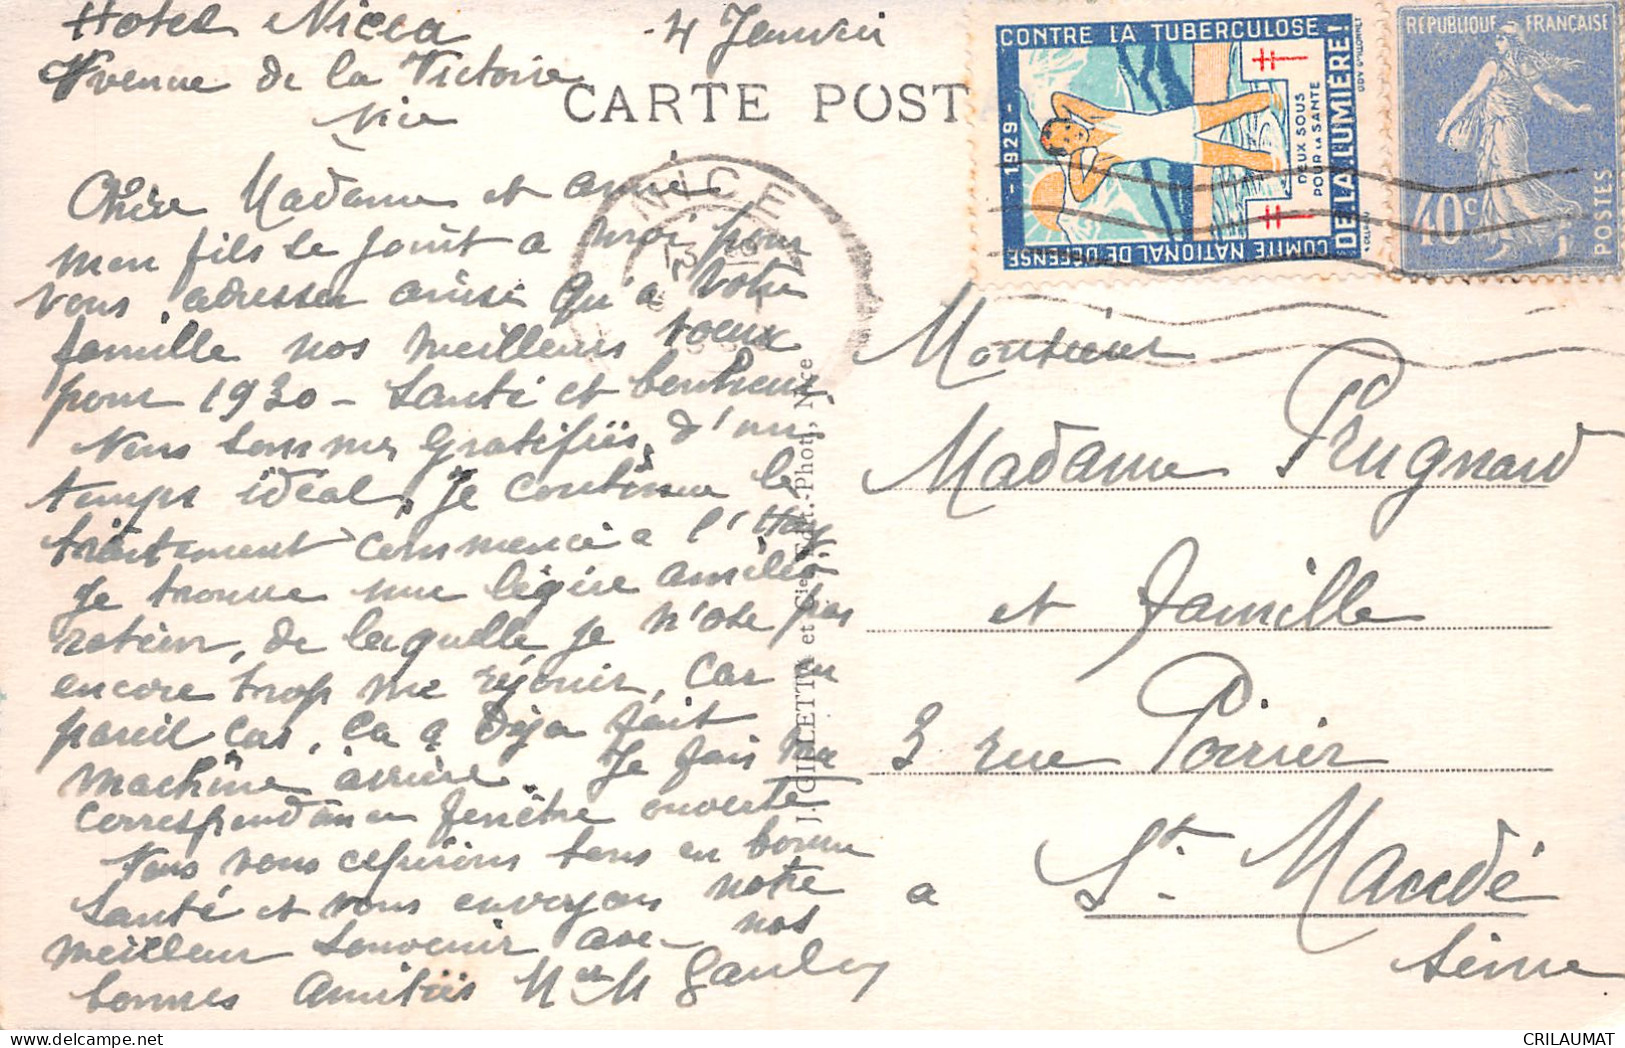 Hotel Nicca
4 Janvier
Avenue de la Victoire
Nice
CARTE POST
Chère Madame et amie
mon fils se joint a moi pour
vous adresser ainsi qu'a votre
famille nos meilleurs voeux
pour 1930 - Santé et bonheur
Nous sommes gratifiés d'un
temps idéal, je continue le
traitement commencé a l'Hay
je trouve une légère amélio
ration, de laquelle je n'ose pas
encore trop me réjouir, car en
pareil cas, ça a déja fait
machine arrière. Je fais ma
correspondance fenêtre ouverte
Nous vous espérons tous en bonne
Santé et vous envoyons notre
meilleur souvenir avec nos
bonnes Amitiés
J. GILLETTA et Cie, Edit.-Phot., Nice
NICE
CONTRE LA TUBERCULOSE
DE LA LUMIÈRE!
COMITE NATIONAL DE DÉFENSE
- 1929 -
DEUX SOUS
POUR LA SANTÉ
RÉPUBLIQUE FRANÇAISE
40c
POSTES
Monsieur
Madame Prugnard
et famille
3 rue Poirier
a St. Mandé
Seine
CRILAUMAT